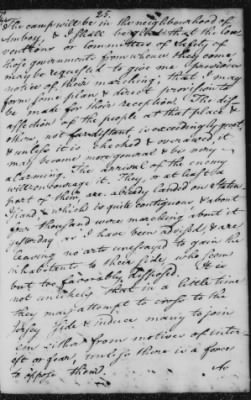 25.
The camp will be in the neighbourhood of
Amboy, & I shall be glad that the Con
ventions or Committees of Safety of
those governments from whence they come
may be requested to give me previous
notice of their marching, that I may
form some plan & direct provision to
be made for their reception. The dis
affection of the people at that place &
others, not far distant is exceedingly great,
& unless it is checked & overawed it
may become more general & be very
alarming. The arrival of the enemy
will encourage it. They, or at least a
part of them, are already landed on Staten
Island, which is quite contiguous, & about
four thousand were marching about it
yesterday as I have been advised, & are
leaving no arts unessayed to gain the
inhabitants to their side, who seem
but too favorably disposed. It is
not unlikely that in a little time
they may attempt to cross to the
Jersey side & induce many to join
em either from motives of inter
est or fear, unless there is a force
to oppose them.